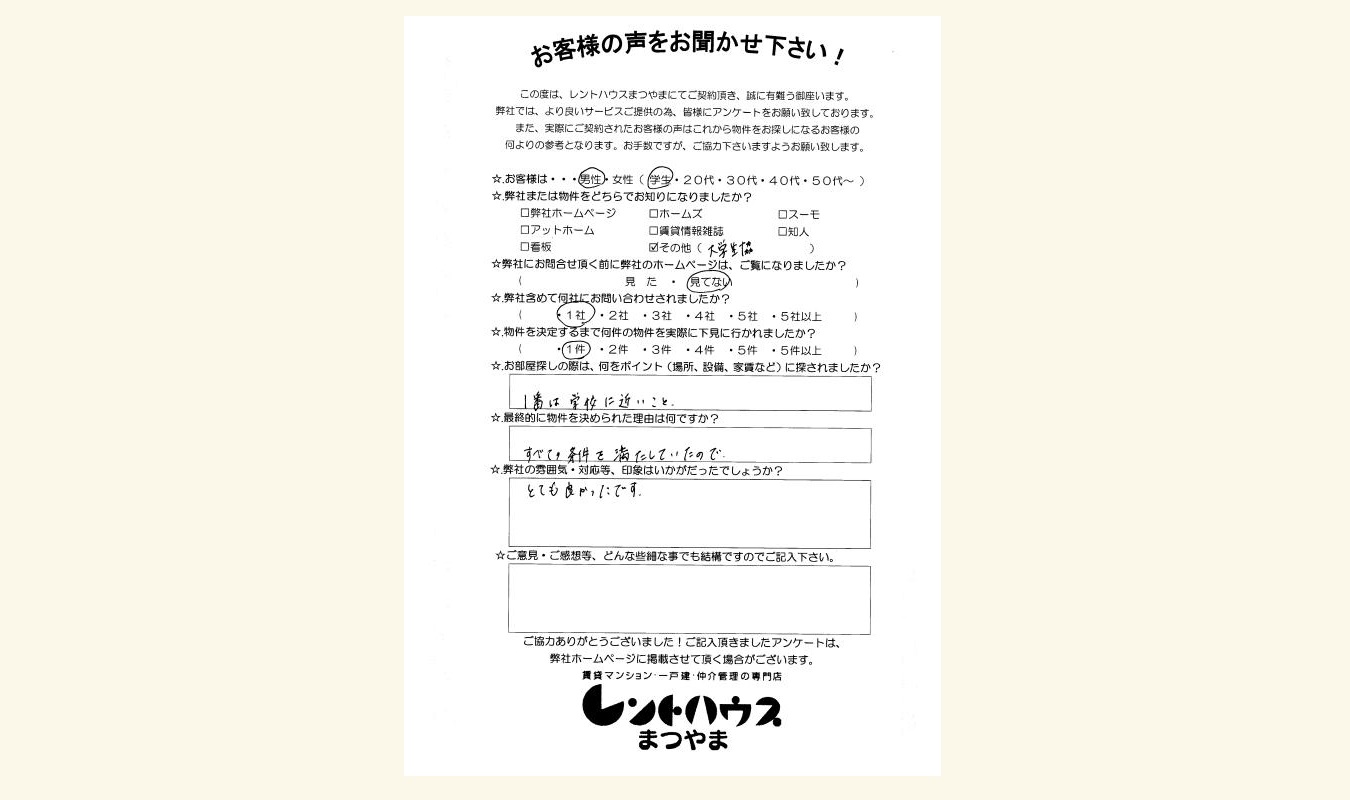 お客様の声をお聞かせ下さい！
この度は、レントハウスまつやまにてご契約頂き、誠に有難う御座います。
弊社では、より良いサービスご提供の為、皆様にアンケートをお願い致しております。
また、実際にご契約されたお客様の声はこれから物件をお探しになるお客様の
何よりの参考となります。お手数ですが、ご協力下さいますようお願い致します。
☆.お客様は・・・男性・女性（ 学生・２０代・３０代・４０代・５０代～ ）
☆.弊社または物件をどちらでお知りになりましたか？
□弊社ホームページ　□ホームズ　□スーモ
□アットホーム　□賃貸情報雑誌　□知人
□看板　☑その他（ 大学生協 ）
☆弊社にお問合せ頂く前に弊社のホームページは、ご覧になりましたか？
（　見 た ・ 見てない　）
☆.弊社含めて何社にお問い合わせされましたか？
（　・１社 ・２社 ・３社 ・４社 ・５社 ・５社以上　）
☆.物件を決定するまで何件の物件を実際に下見に行かれましたか？
（　・１件 ・２件 ・３件 ・４件 ・５件 ・５件以上　）
☆.お部屋探しの際は、何をポイント（場所、設備、家賃など）に探されましたか？
１番は 学校 に 近いこと.
☆.最終的に物件を決められた理由は何ですか？
すべての条件を満たしていたので.
☆.弊社の雰囲気・対応等、印象はいかがだったでしょうか？
とても良かったです.
☆ご意見・ご感想等、どんな些細な事でも結構ですのでご記入下さい。
ご協力ありがとうございました！ご記入頂きましたアンケートは、
弊社ホームページに掲載させて頂く場合がございます。
賃貸マンション・一戸建・仲介管理の専門店
レントハウス
まつやま